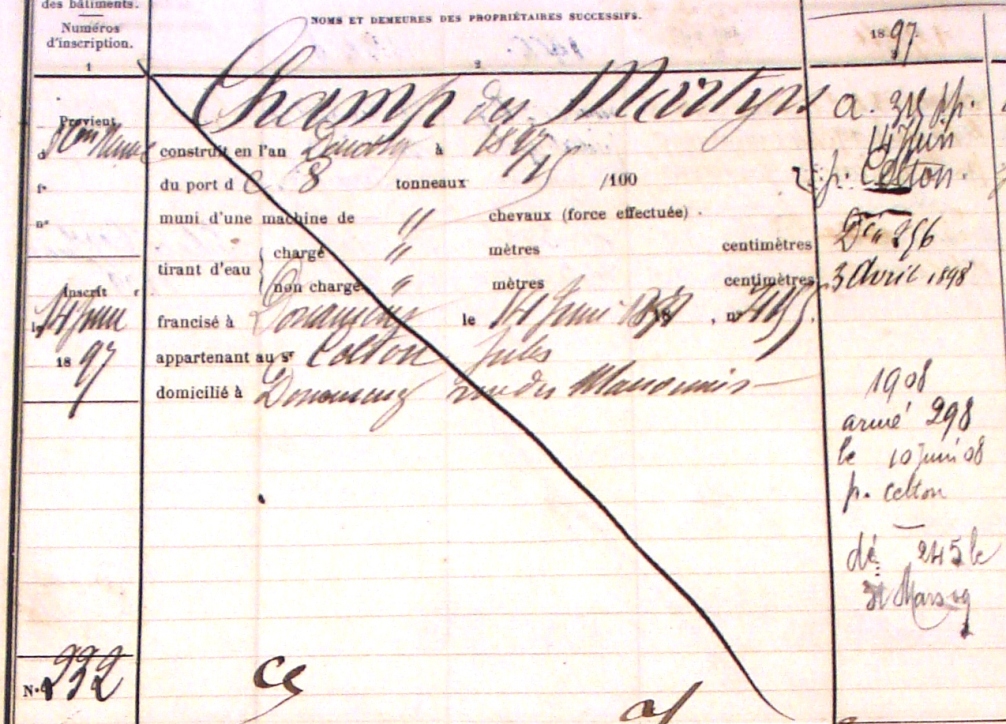 des bâtiments.
Numéros
d'inscription.
1
NOMS ET DEMEURES DES PROPRIÉTAIRES SUCCESSIFS.
2
1897
Champ des Martyrs
Provient
construit en l'an à 1897
du port de 8 tonneaux /100
muni d'une machine de " chevaux (force effectuée)
tirant d'eau
chargé " mètres centimètres
non chargé " mètres centimètres
Inscrit
le 14 Juin
1897
francisé à Douarnenez le 14 Juin 18 , n°
appartenant au sr Celton Jules
domicilié à Douarnenez rue des
N° 232
a. 315 p.
14 Juin
p. Celton.
Dé 256
3 Avril 1898
1908
armé 298
le 10 juin 08
p. Celton
dé 245 le
31 Mars 09